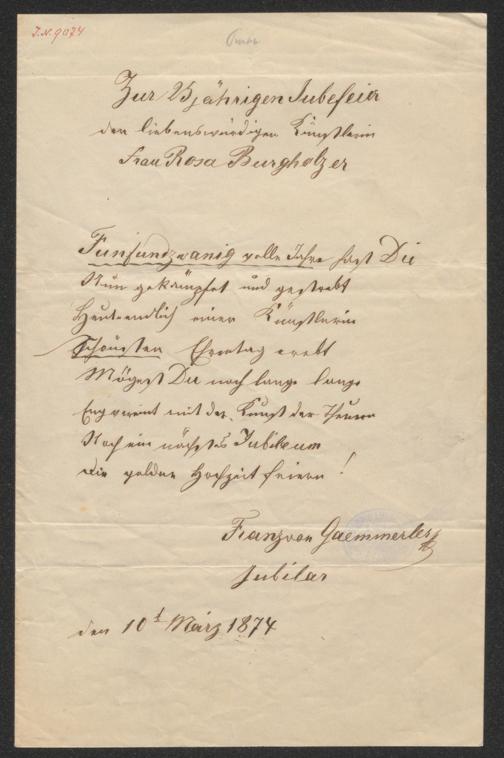 J.N. 9074
Zur 25 jährigen Jubelfeier
der liebenswürdigen Künstlerin
Frau Rosa Burgholzer
Fünfundzwanig volle Jahre hast Du
Nun gekämpfet und gestrebt
Heut endlich einer Künstlerin
Schönsten Ehrentag erlebt
Mögest Du noch lange lange
Eng vereint mit der Kunst der Theuern
Noch ein nächstes Jubileum
Die goldne Hochzeit feiern!
Franz von Gaemmerler
Jubilar
den 10t März 1874